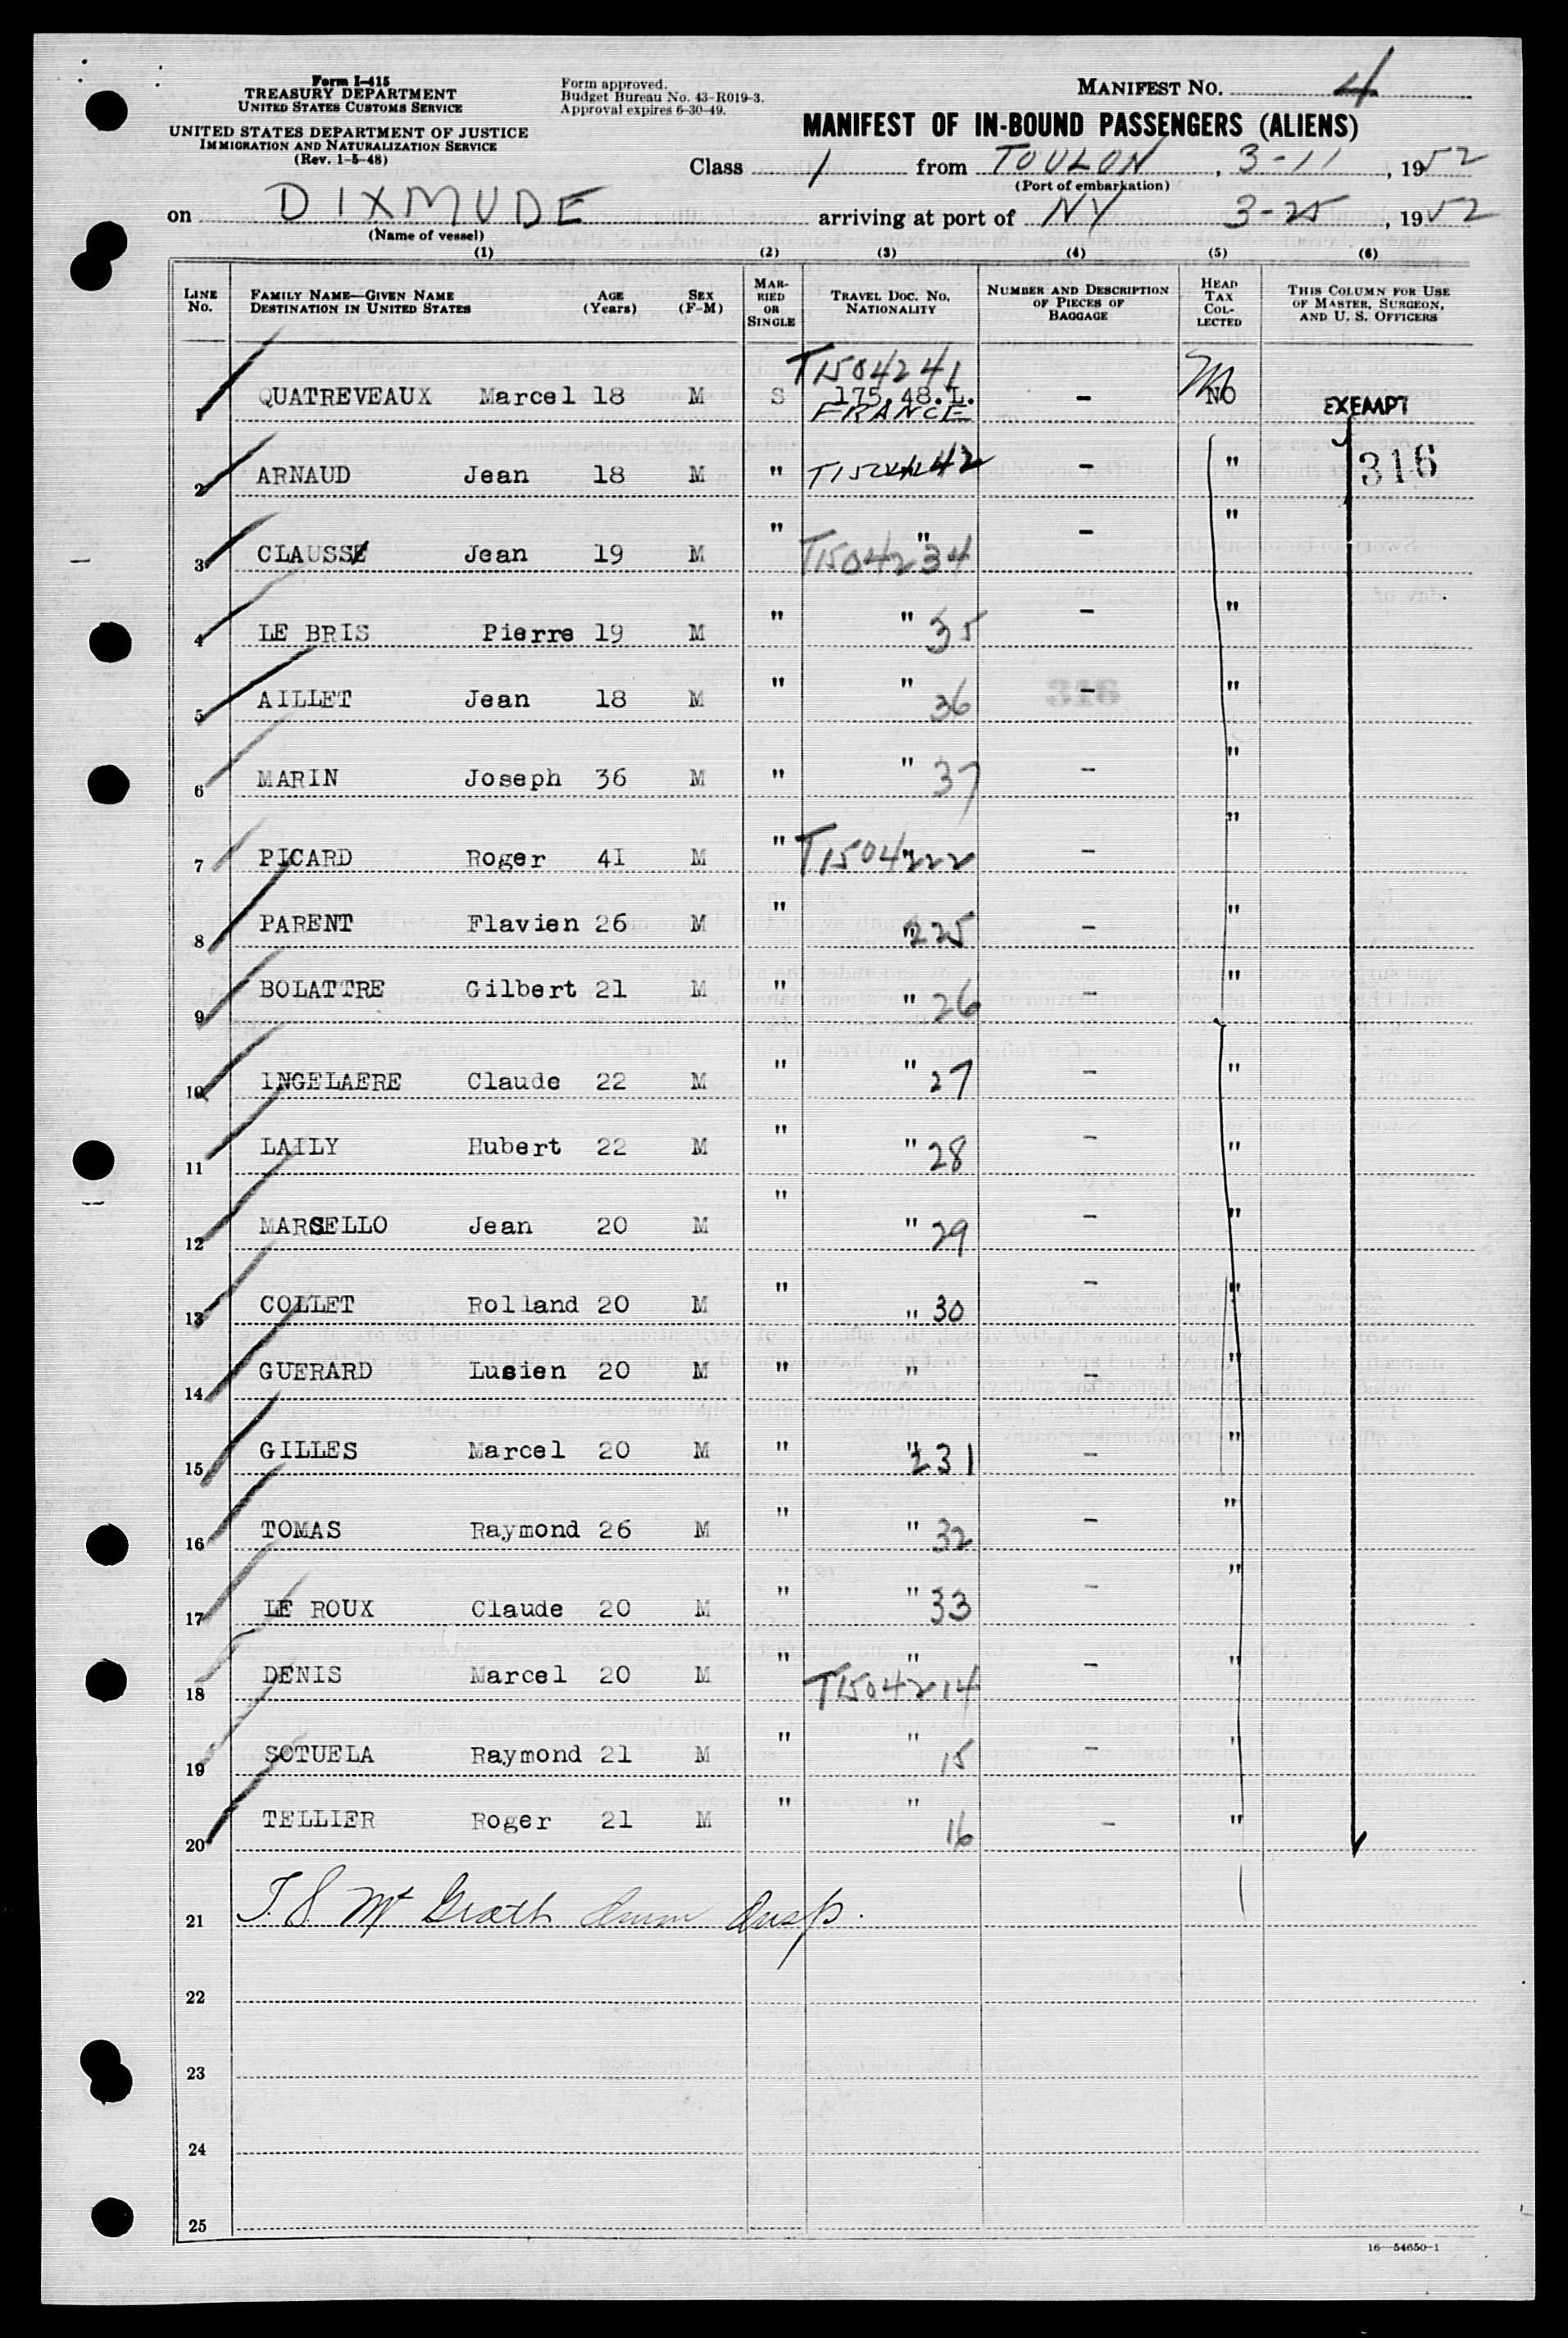 Form I-415
TREASURY DEPARTMENT
UNITED STATES CUSTOMS SERVICE
UNITED STATES DEPARTMENT OF JUSTICE
IMMIGRATION AND NATURALIZATION SERVICE
(Rev. 1-5-48)
Form approved.
Budget Bureau No. 43-R019-3.
Approval expires 6-30-49.
MANIFEST NO. 4
MANIFEST OF IN-BOUND PASSENGERS (ALIENS)
Class 1 from TOULON, 3-11, 1952
(Port of embarkation)
on DIXMUDE arriving at port of NY 3-25, 1952
(Name of vessel)
(1) (2) (3) (4) (5) (6)
LINE NO. FAMILY NAME—GIVEN NAME DESTINATION IN UNITED STATES AGE (Years) SEX (F-M) MARRIED OR SINGLE TRAVEL DOC. NO. NATIONALITY NUMBER AND DESCRIPTION OF PIECES OF BAGGAGE HEAD TAX COLLECTED THIS COLUMN FOR USE OF MASTER, SURGEON, AND U. S. OFFICERS
T1504241
1 QUATREVEAUX Marcel 18 M S 175.48.L. - NO EXEMPT
FRANCE
2 ARNAUD Jean 18 M " 42 - " 316
3 CLAUSSE Jean 19 M " " T1504234 - "
4 LE BRIS Pierre 19 M " " 35 - "
5 AILLET Jean 18 M " " 36 - "
6 MARIN Joseph 36 M " " 37 - "
7 PICARD Roger 41 M " T1504222 - "
8 PARENT Flavien 26 M " 225 - "
9 BOLATTRE Gilbert 21 M " " 26 - "
10 INGELAERE Claude 22 M " " 27 - "
11 LAILY Hubert 22 M " " 28 - "
12 MARSELLO Jean 20 M " " 29 - "
13 COLLET Rolland 20 M " " 30 - "
14 GUERARD Lusien 20 M " " - "
15 GILLES Marcel 20 M " 231 - "
16 TOMAS Raymond 26 M " " 32 - "
17 LE ROUX Claude 20 M " " 33 - "
18 DENIS Marcel 20 M " " T1504214 - "
19 SOTUELA Raymond 21 M " " 15 - "
20 TELLIER Roger 21 M " " 16 - "
21 T. J. McGrath Imm Insp.
22
23
24
25
16—54650-1